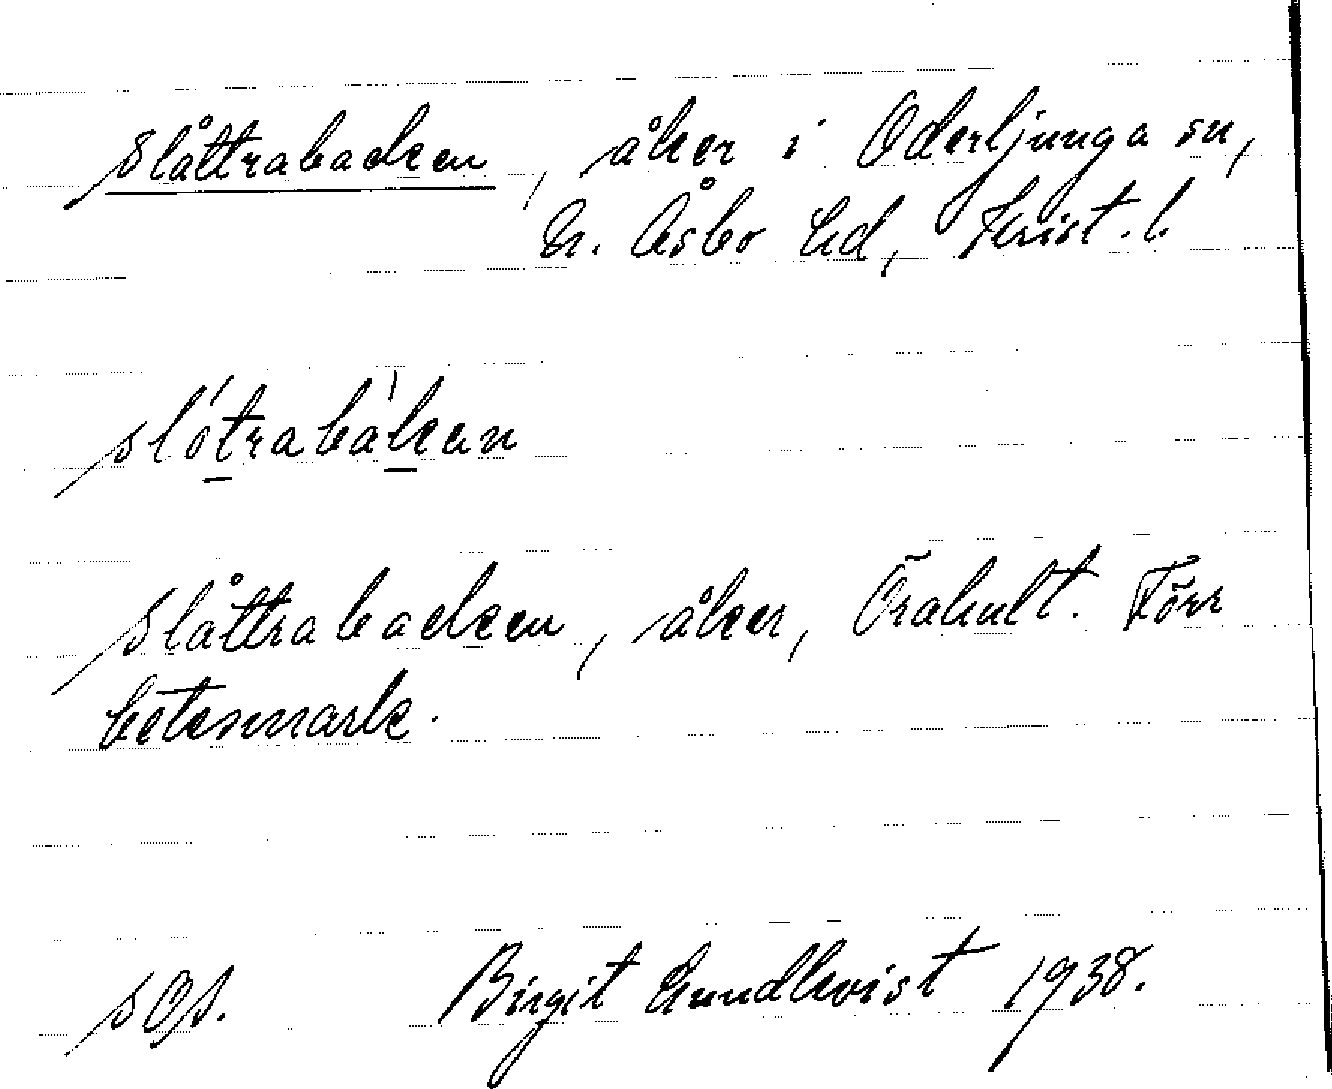 Slättrabacken, åker i Oderljunga sn,
N. Åsbo hd, Krist. l.
slótrabàkan
Slåttrabacken, åker, Örahult. Förr
betesmark.
sOp. Birgit Lundkvist 1938.